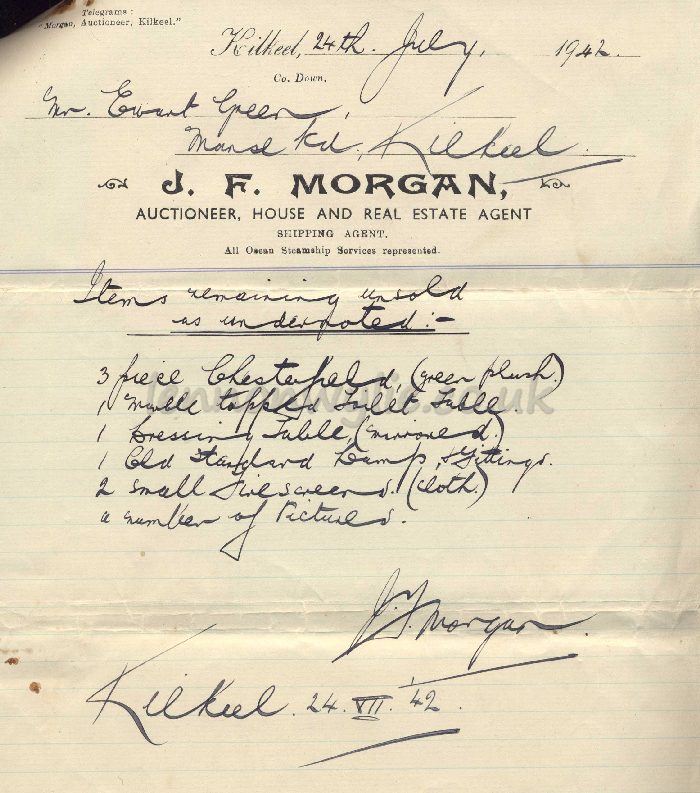 Telegrams :
"Morgan, Auctioneer, Kilkeel."
Kilkeel, 24th. July, 1942.
Co. Down.
Mr. Ewart Green,
Manse Rd., Kilkeel.
J. F. MORGAN,
AUCTIONEER, HOUSE AND REAL ESTATE AGENT
SHIPPING AGENT.
All Ocean Steamship Services represented.
Items remaining unsold
as undernoted:-
3 piece Chesterfield, (green plush)
1 marble topped Toilet Table.
1 Dressing Table, (mirrored.)
1 Old Standard Lamp, & Fittings.
2 small Firescreens. (cloth.)
a number of Pictures.
J. F. Morgan.
Kilkeel. 24. VII. '42.
lennonwylie.co.uk